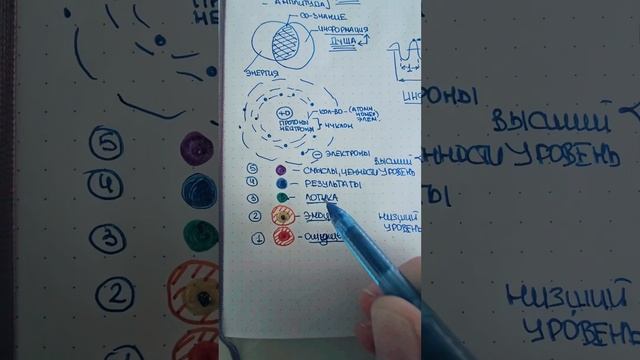 АМПЛИТУДА]
СО-ЗНАНИЕ
ИНФОРМАЦИЯ
ДУША
ЭНЕРГИЯ
+0
ПРОТОНЫ
НЕЙТРОНЫ
НУКЛОН
КОЛ-ВО - (АТОМН.
НОМЕР
ЭЛЕМ)
ЭЛЕКТРОНЫ
ВЫСШИЙ
УРОВЕНЬ
5 - СМЫСЛЫ, ЦЕННОСТИ
4 - РЕЗУЛЬТАТЫ
3 - ЛОГИКА
2
1
НИЗШИЙ
УРОВЕНЬ
5
4
3
2
РОНЫ
ВЫСШИЙ
ННОСТИ УРОВЕНЬ
ТЫ
НИЗШИЙ
УРОВЕНЬ